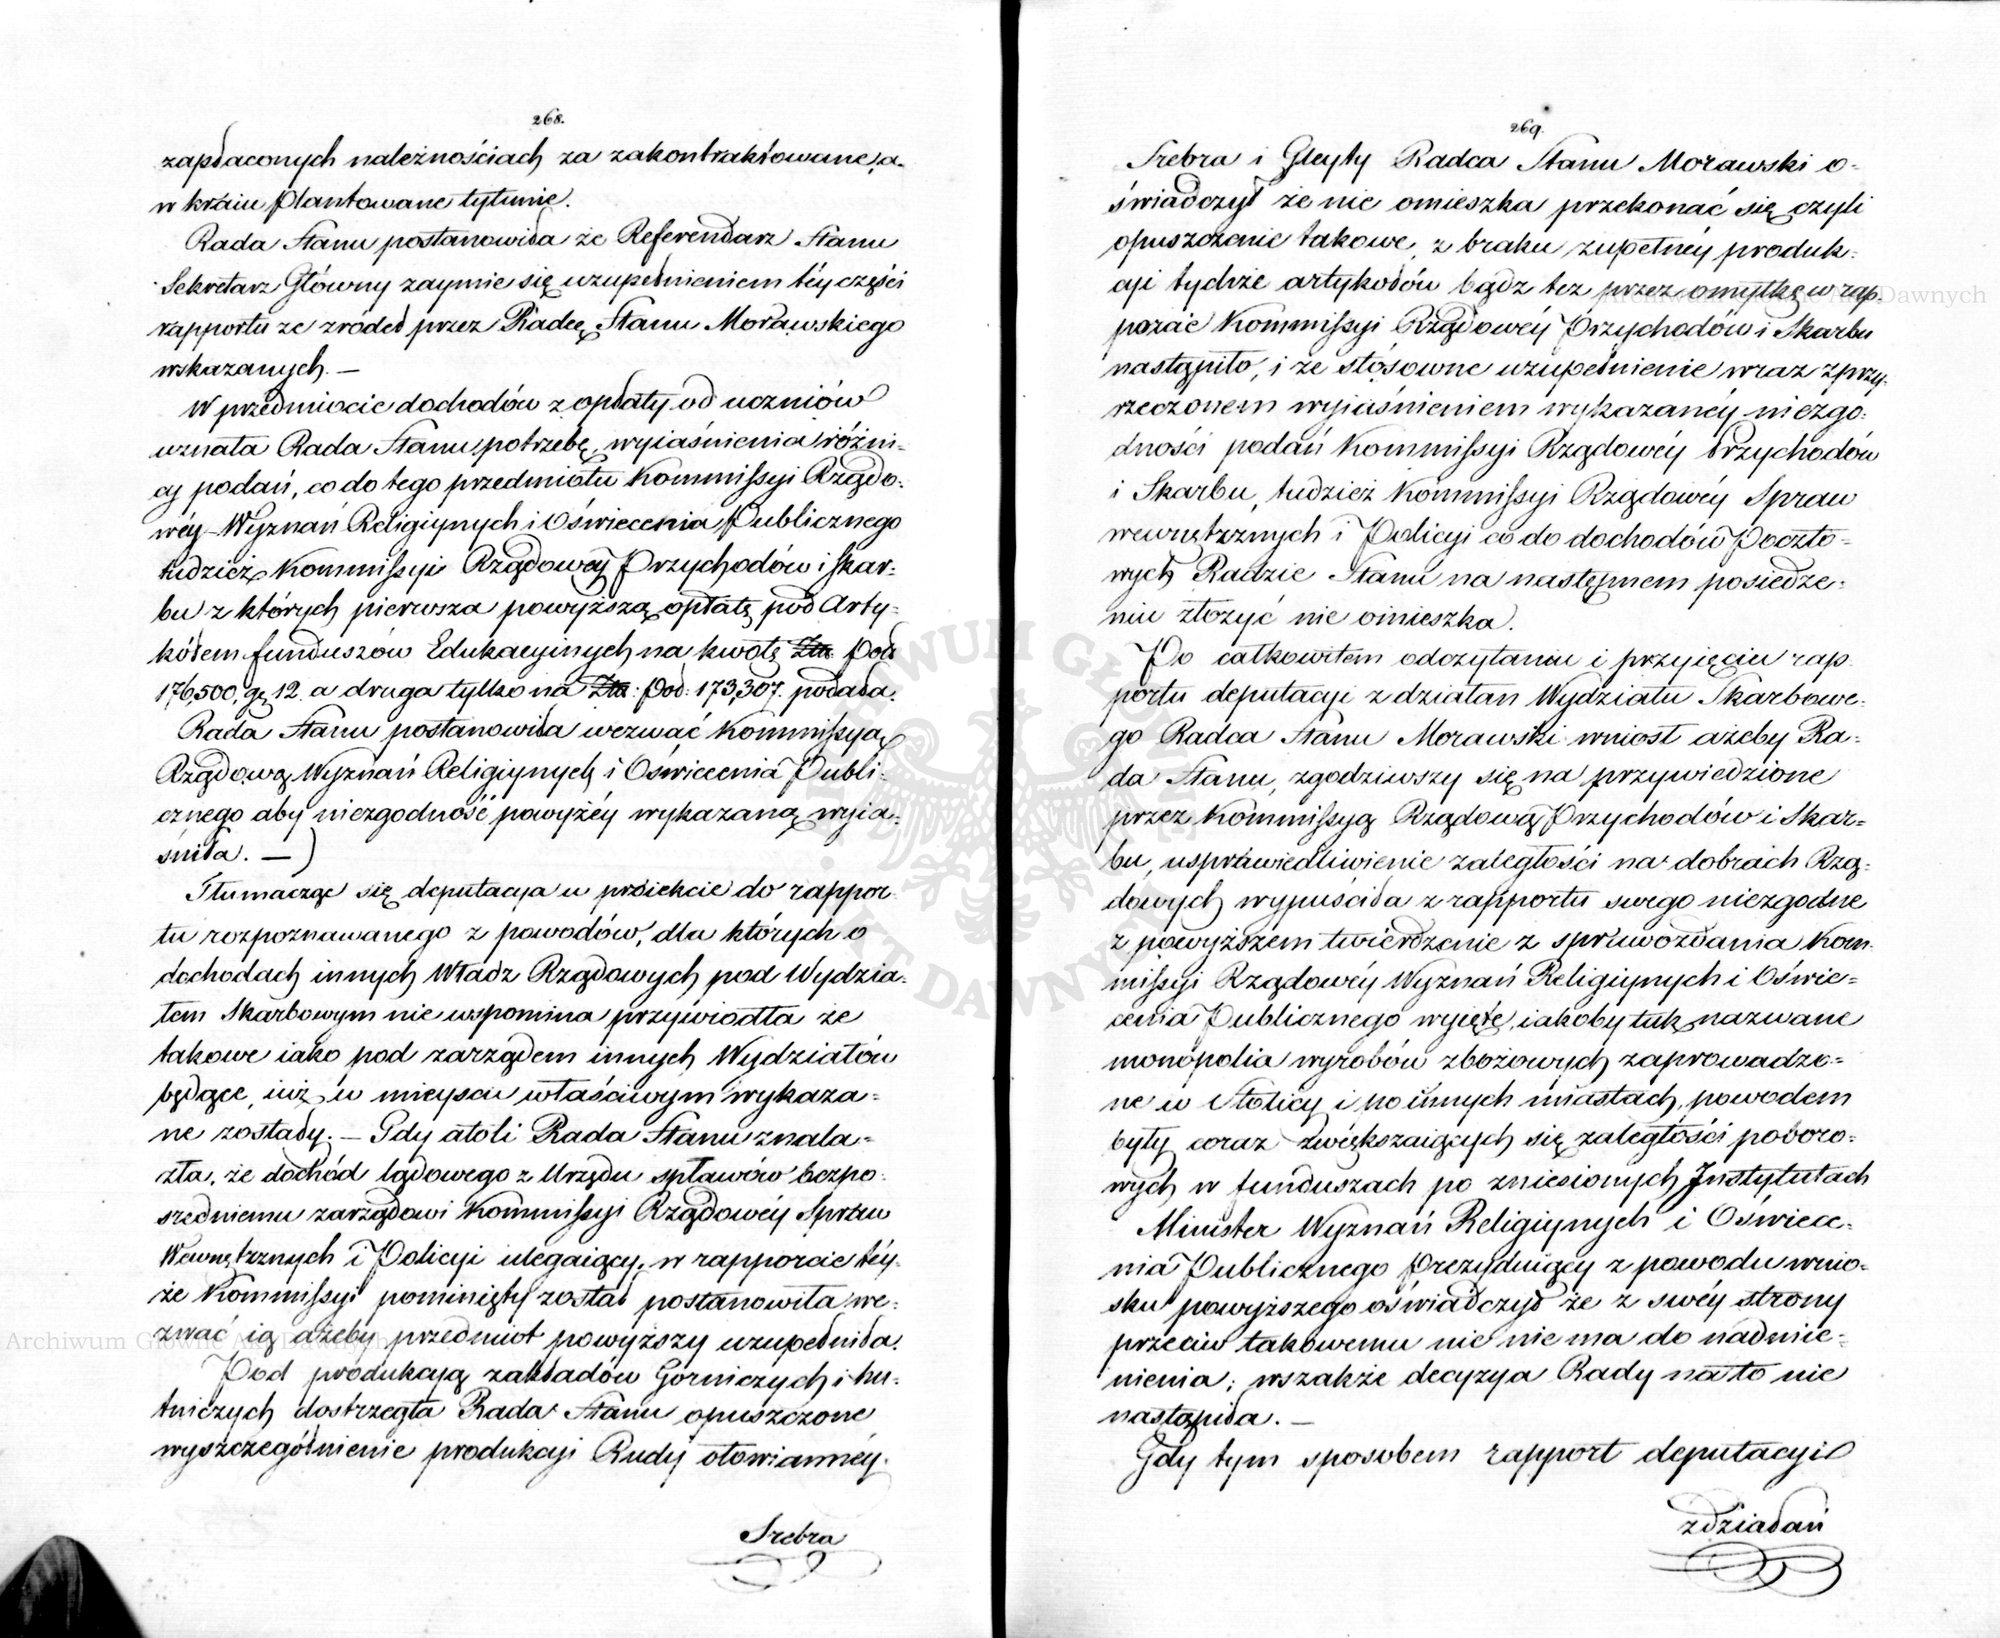 268.
zapłaconych należnościach za zakontraktowane, a
w kraiu plantowane tytunie.
Rada Stanu postanowiła że Referendarz Stanu
Sekretarz Główny zaymie się uzupełnieniem téy części
rapportu ze zródeł przez Radcę Stanu Morawskiego
wskazanych. —
W przedmiocie dochodów z opłaty od uczniów
uznała Rada Stanu potrzebę wyiaśnienia różni-
cy podań, co do tego przedmiotu Kommissyi Rządo-
wéy Wyznań Religiynych i Oświecenia Publicznego
tudzież Kommissyi Rządowéy Przychodów i Skar-
bu z których pierwsza powyższą opłatę pod Arty-
kółem funduszów Edukacyinych na kwotę Złt. Pol:
176,500, gr. 12. a druga tylko na Złt: Pol: 173,307. podała.
Rada Stanu postanowiła wezwać Kommissyą
Rządową Wyznań Religiynych i Oświecenia Publi-
cznego aby niezgodność powyżéy wykazaną wyia-
śniła. —)
Tłumacząc się deputacya w proiekcie do rappor-
tu rozpoznawanego z powodów, dla których o
dochodach innych Władz Rządowych pod Wydzia-
łem Skarbowym nie wspomina przywiodła że
takowe iako pod zarządem innych Wydziałów
będące, iuż w mieyscu właściwym wykaza-
ne zostały. — Gdy atoli Rada Stanu znala-
zła, że dochód lądowego z Urzędu spławów bezpo-
średniemu zarządowi Kommissyi Rządowéy Spraw
Wewnętrznych i Policyi ulegaiący, w rapporcie téy-
że Kommissyi pominięty został postanowiła we-
zwać ią ażeby przedmiot powyższy uzupełniła.
Pod produkcyą zakładów Górniczych i hu-
tniczych dostrzegła Rada Stanu opuszczone
wyszczególnienie produkcyi Rudy ołowiannéy.
Srebra
269.
Srebra i Gleyty Radca Stanu Morawski o-
świadczył że nie omieszka przekonać się czyli
opuszczenie takowe, z braku zupełnéy produk-
cyi tychże artykułów bądz też przez omyłkę w rap-
porcie Kommissyi Rządowéy Przychodów i Skarbu
nastąpiło, i że stósowne uzupełnienie wraz z przy-
rzeczonem wyiaśnieniem wykazanéy niezgo-
dności podań Kommissyi Rządowéy Przychodów
i Skarbu, tudzież Kommissyi Rządowéy Spraw
wewnętrznych i Policyi co do dochodów Poczto-
wych Radzie Stanu na następnem posiedze-
niu złożyć nie omieszka.
Po całkowitem odczytaniu i przyięciu rap-
portu deputacyi z działań Wydziału Skarbowe-
go Radca Stanu Morawski wniósł ażeby Ra-
da Stanu, zgodziwszy się na przywiedzione
przez Kommissyą Rządową Przychodów i Skar-
bu, usprawiedliwienie zaległości na dobrach Rzą-
dowych wypuściła z rapportu swego niezgodne
z powyższem twierdzenie z sprawozdania Kom-
missyi Rządowéy Wyznań Religiynych i Oświe-
cenia Publicznego wyięte, iakoby tak nazwane
monopolia wyrobów zbożowych zaprowadzo-
ne w Stolicy i po innych miastach, powodem
były coraz zwiększaiących się zaległości poboro-
wych w funduszach po zniesionych Instytutach
Minister Wyznań Religiynych i Oświece-
nia Publicznego Prezyduiący z powodu wnio-
sku powyższego oświadczył że z swéy strony
przeciw takowemu nic nie ma do nadmie-
nienia; wszakże decyzya Rady na to nie
nastąpiła. —
Gdy tym sposobem rapport deputacyi
z działań
Archiwum Główne Akt Dawnych